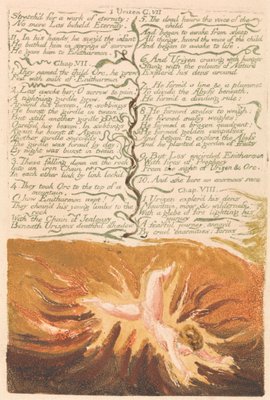 Urizen C. VII
Stretch'd for a work of eternity
No more Los beheld Eternity.
10. In his hands he seiz'd the infant
He bathed him in springs of sorrow
He gave him to Enitharmon.
Chap. VII.
1. They named the child Orc, he grew
Fed with milk of Enitharmon
2. Los awoke her; O sorrow & pain!
A tight'ning girdle grew,
Around his bosom. In sobbings
He burst the girdle in twain,
But still another girdle
Oppress'd his bosom, In sobbings
Again he burst it. Again
Another girdle succeeds
The girdle was form'd by day;
By night was burst in twain.
3. These falling down on the rock
Into an iron Chain
In each other link by link lock'd
4. They took Orc to the top of a
mountain.
O how Enitharmon wept!
They chain'd his young limbs to the
rock
With the Chain of Jealousy
Beneath Urizens deathful shadow
5. The dead heard the voice of the
child
And began to awake from sleep
All things. heard the voice of the child
And began to awake to life.
6. And Urizen craving with hunger
Stung with the odours of Nature
Explor'd his dens around
7. He form'd a line & a plummet
To divide the Abyss beneath.
He form'd a dividing rule:
8. He formed scales to weigh;
He formed massy weights;
He formed a brazen quadrant;
He formed golden compasses
And began to explore the Abyss
And he planted a garden of fruits
9. But Los encircled Enitharmon
With fires of Prophecy
From the sight of Urizen & Orc.
10. And she bore an enormous race
Chap. VIII.
1. Urizen explor'd his dens
Mountain, moor, & wilderness,
With a globe of fire lighting his
journey
A fearful journey, annoy'd
By cruel enormities: forms